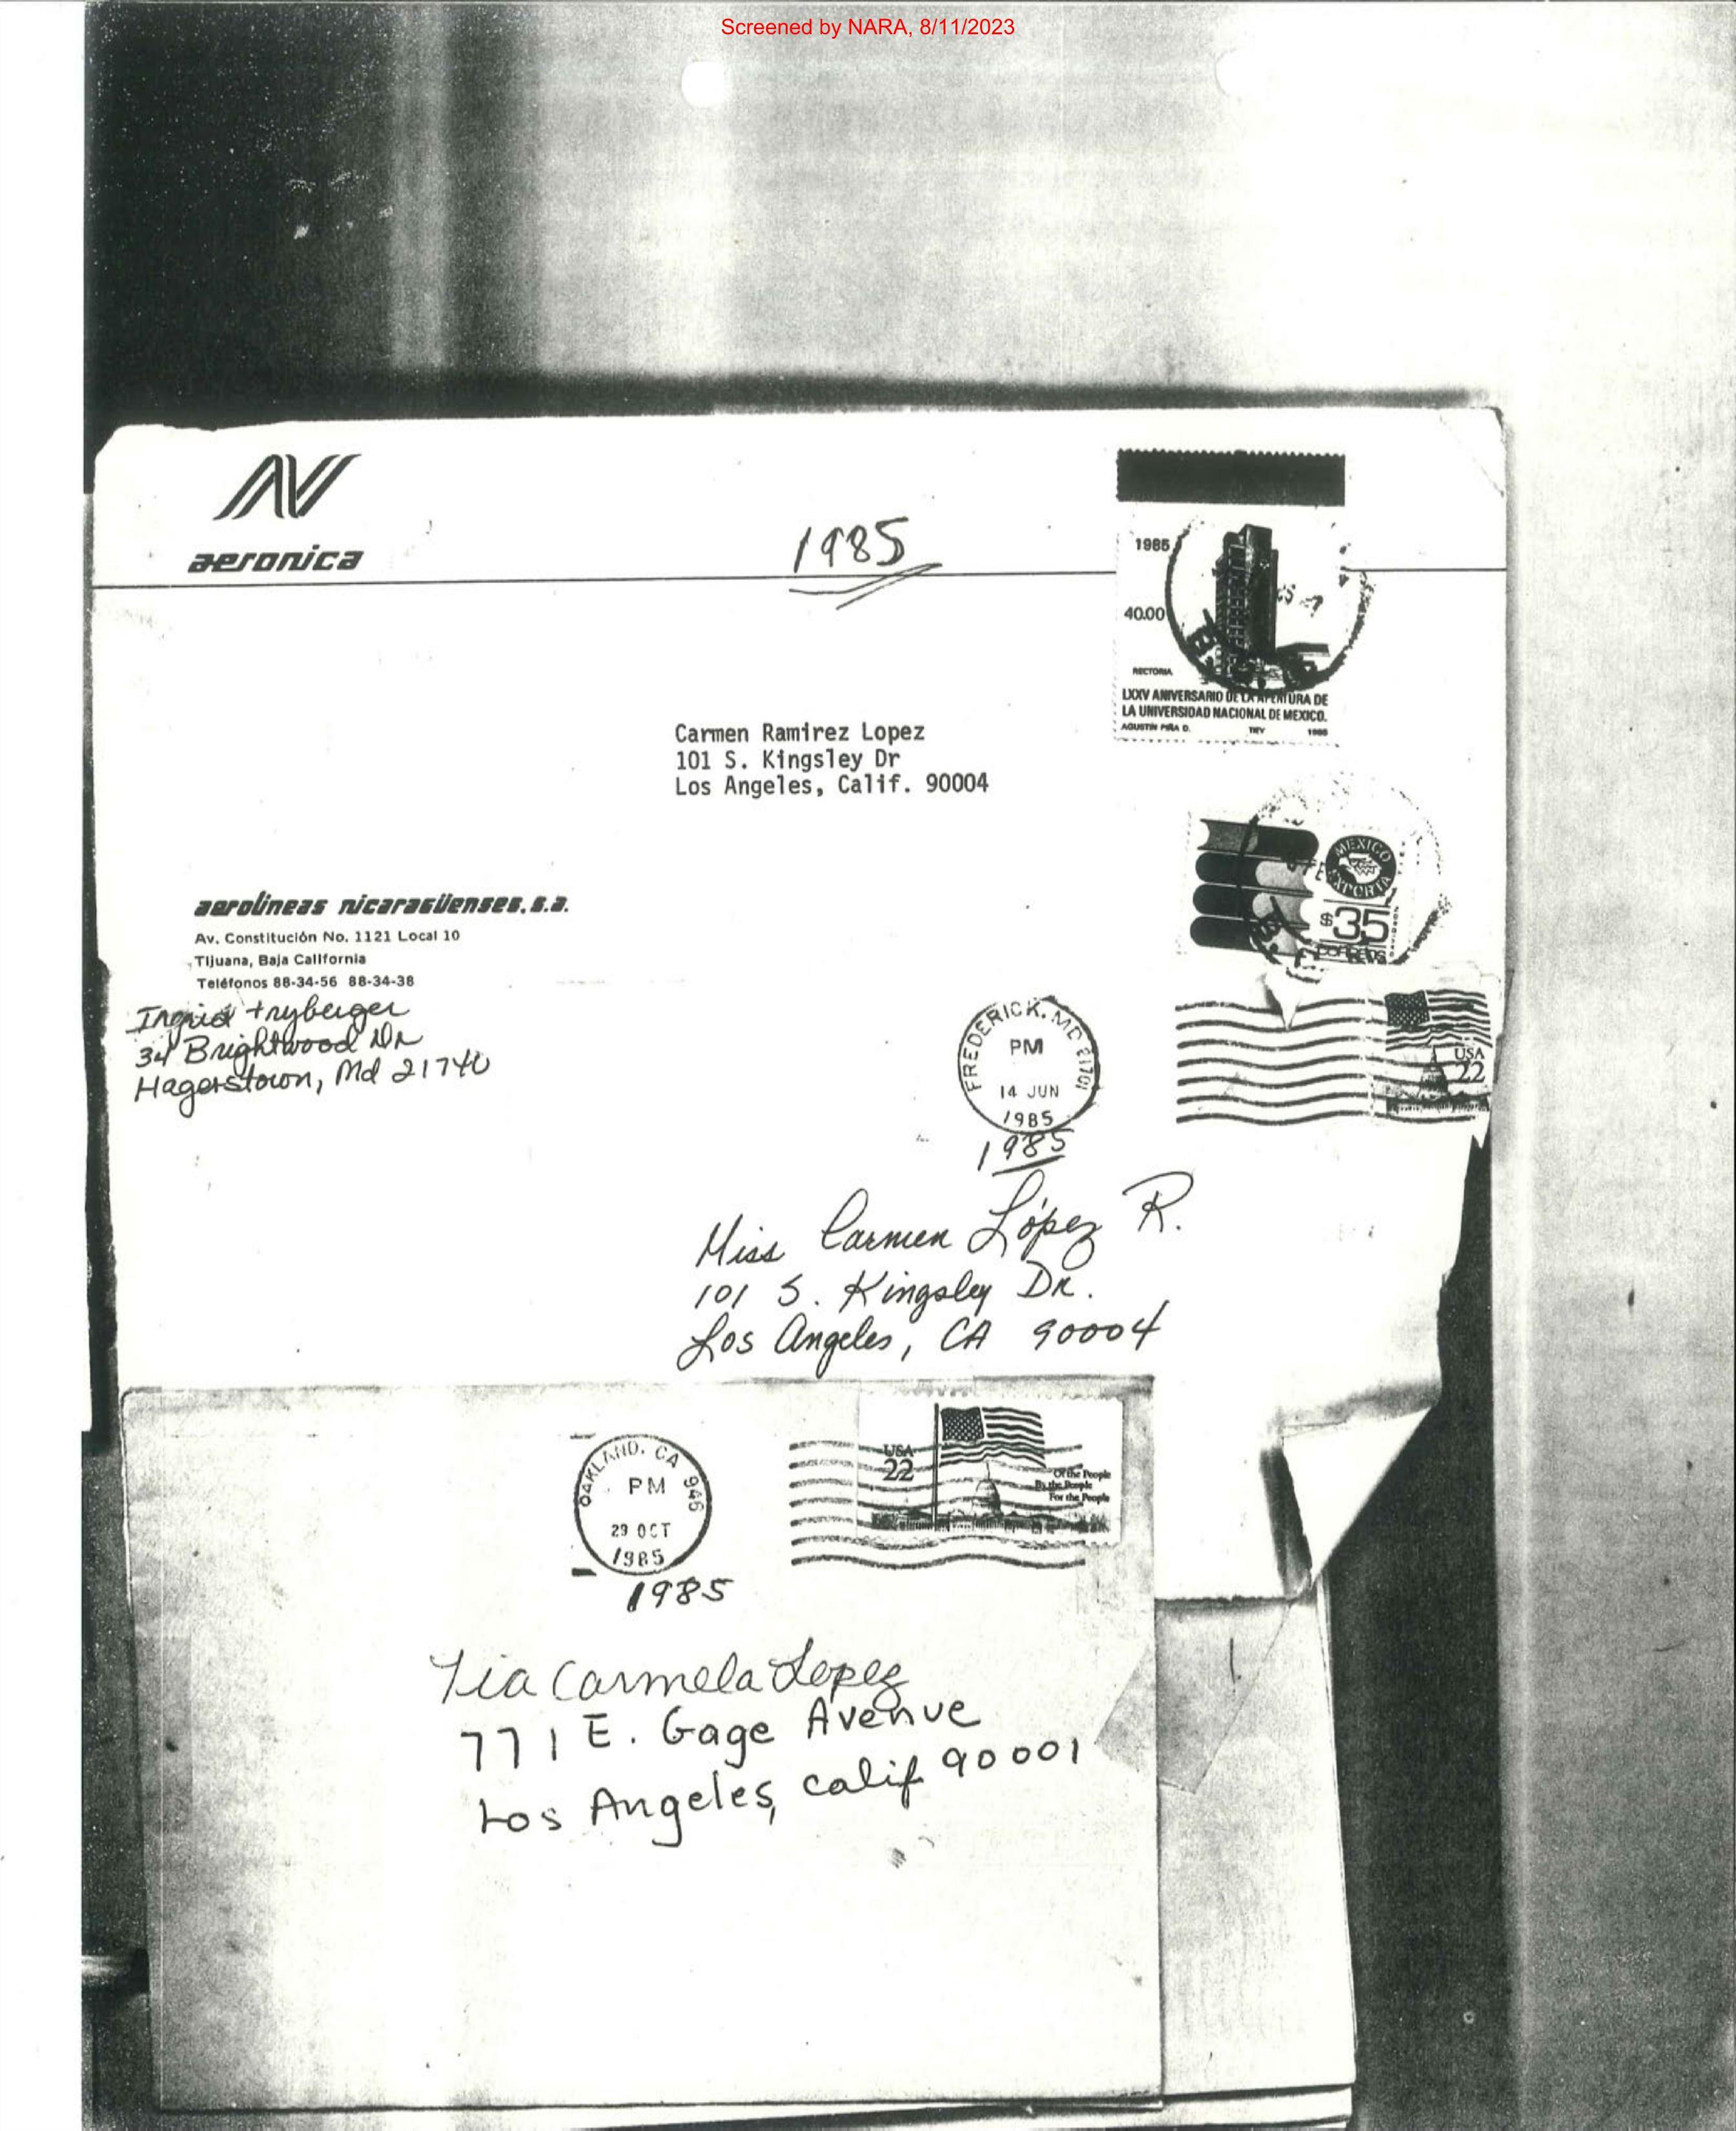 Screened by NARA, 8/11/2023
aeronica
1985
1985
40.00
RECTORIA
LXXV ANIVERSARIO DE LA APERTURA DE
LA UNIVERSIDAD NACIONAL DE MEXICO.
AGUSTIN PIÑA D. TIEV 1985
Carmen Ramirez Lopez
101 S. Kingsley Dr
Los Angeles, Calif. 90004
MEXICO
EXPORTA
$35
CORREOS
aerolineas nicaragüenses, s.a.
Av. Constitución No. 1121 Local 10
Tijuana, Baja California
Teléfonos 88-34-56 88-34-38
Ingrid
34 Brightwood Dr
Hagerstown, Md 21740
FREDERICK, MD 21701
PM
14 JUN
1985
1985
USA
22
Miss Carmen López R.
101 S. Kingsley Dr.
Los Angeles, CA 90004
OAKLAND, CA 946
PM
29 OCT
1985
1985
USA
22
Of the People
By the People
For the People
Tia Carmela Lopez
771 E. Gage Avenue
Los Angeles, calif 90001